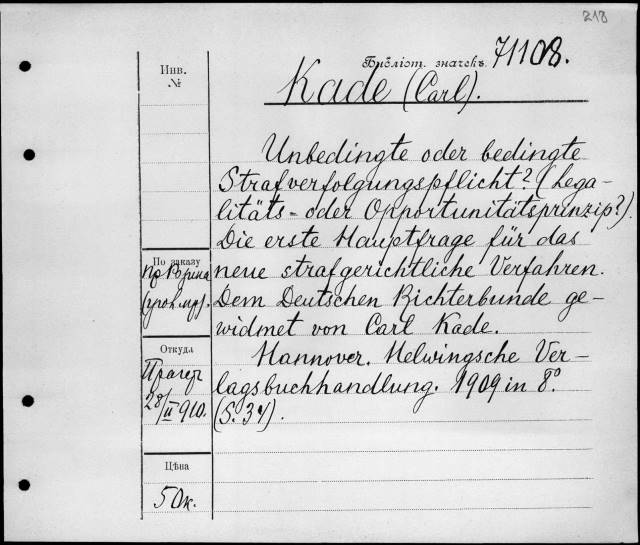 213
Библіот. значекъ. 71108.
Инв.
№
Kade (Carl).
Unbedingte oder bedingte
Strafverfolgungspflicht? (Lega-
litäts- oder Opportunitätsprinzip?).
Die erste Hauptfrage für das
neue strafgerichtliche Verfahren.
Dem Deutschen Richterbunde ge-
widmet von Carl Kade.
Hannover. Helwingsche Ver-
lagsbuchhandlung. 1909 in 8°.
(S. 34).
По заказу
Откуда
Прагеръ
28/II 910.
Цѣна
50к.